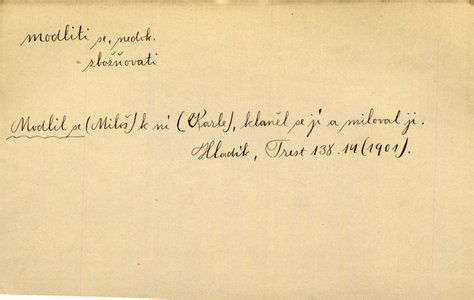 modliti se, nedok.
zbožňovati
Modlil se (Miloš) k ní (Karle), klaněl se jí a miloval ji.
Hladík, Trest 138.14 (1901).